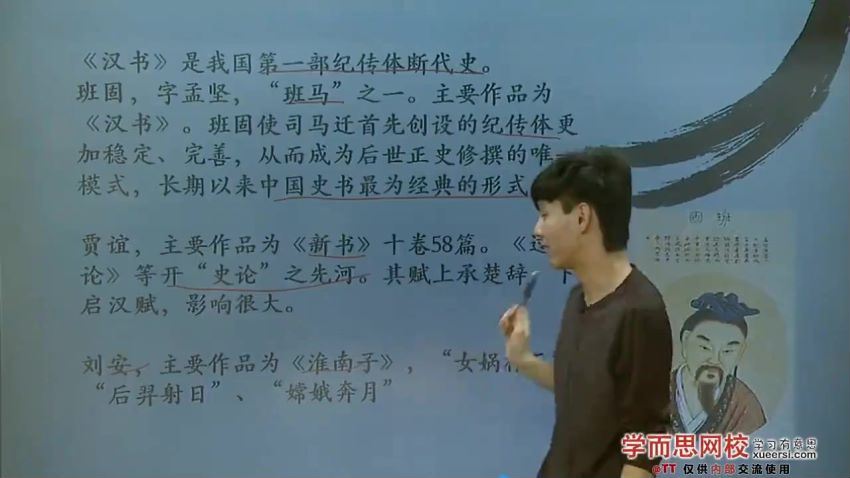 《汉书》是我国第一部纪传体断代史。
班固，字孟坚，“班马”之一。主要作品为
《汉书》。班固使司马迁首先创设的纪传体更
加稳定、完善，从而成为后世正史修撰的唯一
模式，长期以来中国史书最为经典的形式
贾谊，主要作品为《新书》十卷58篇。《过
论》等开“史论”之先河。其赋上承楚辞、下
启汉赋，影响很大。
刘安，主要作品为《淮南子》，“女娲补
“后羿射日”、“嫦娥奔月”
固班
学而思网校
学习有意思
xueersi.com
@TT 仅供内部交流使用